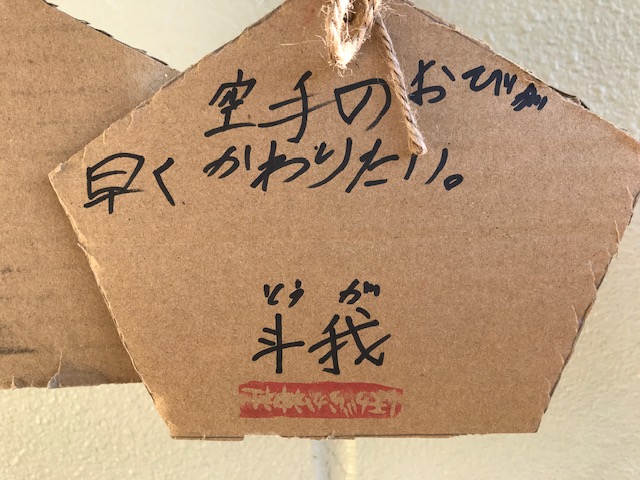 空手のおびが
早くかわりたい。
とうが
斗我